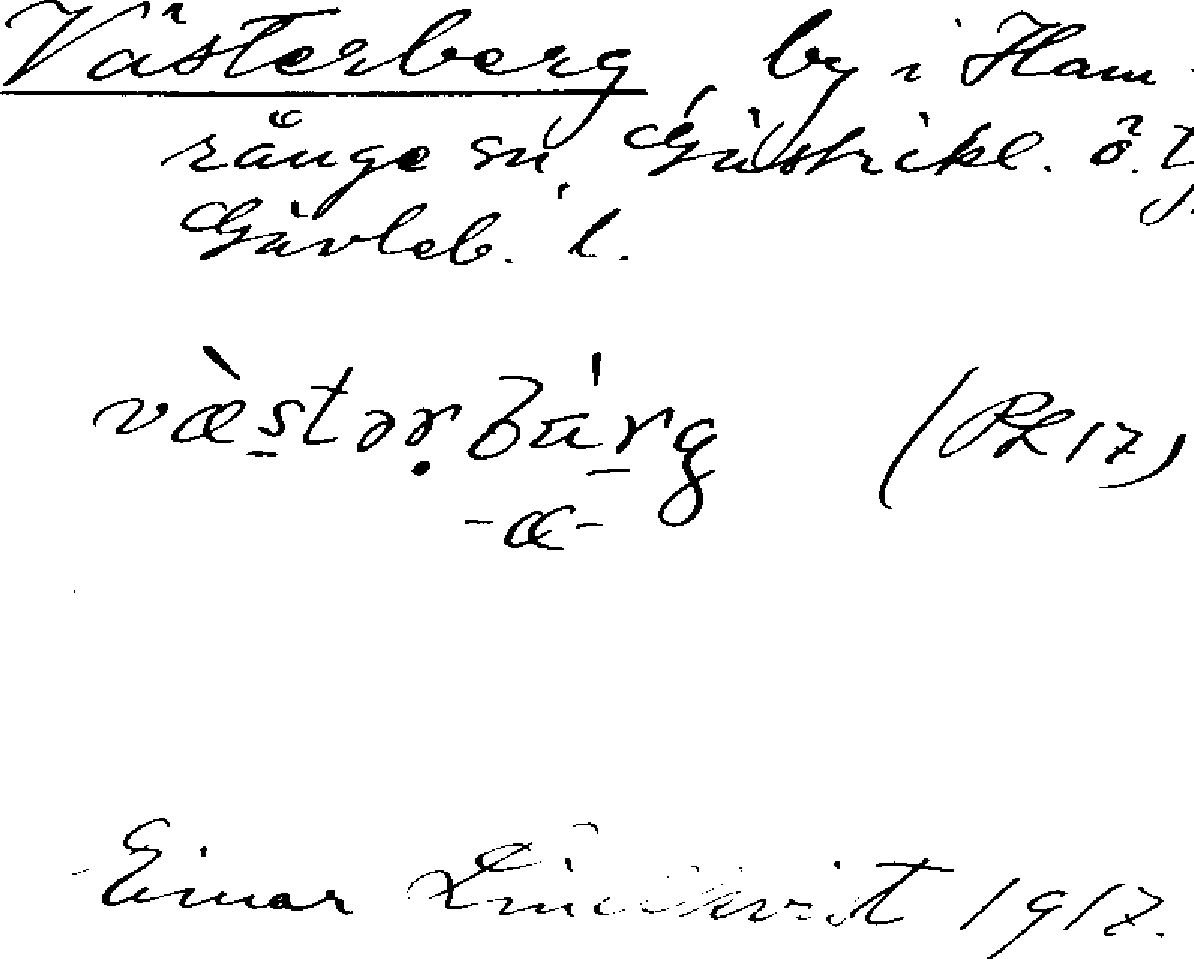 Västerberg, by i Ham-
rånge sn, Gästrikl. ö. tg.
Gävleb. l.
væ̀stərbárg (RL 17)
-æ-
Einar Lindkvist 1917.